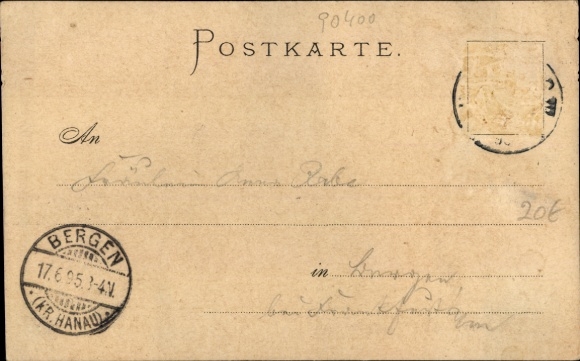 90400
POSTKARTE.
An
Fräulein Anna Rabe
20€
BERGEN
17.6.95.3-4N.
(KR. HANAU)
in Bergen
bei Frankfurt